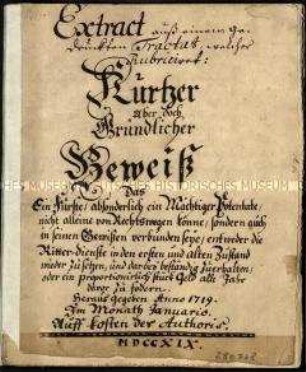 Extract auß einem ge-
druckten Tractat, welcher
Rubriciret:
Kurtzer
Aber doch
Gründlicher
Beweiß
Das
Ein Fürste, absonderlich ein Mächtiger Potentate,
nicht alleine von Rechtswegen könne, sondern auch
in seinen Gewißen verbunden seye, entweder die
Ritter-dienste in den ersten und alten Zustand
wieder zu setzen, und darbey beständig zu erhalten,
oder ein proportionirlich stück Geld alle Jahr
davor zu fodern.
Heraus gegeben Anno 1719.
Im Monath Januario.
Auff kosten der Authoris.
MDCCXIX.
HISTORISCHES MUSEUM